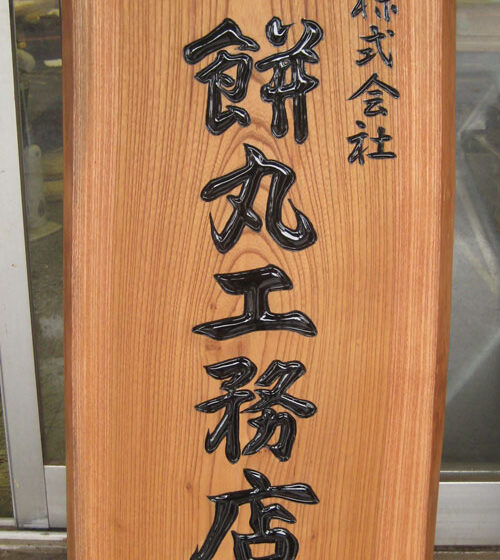 株式会社
餅丸工務店